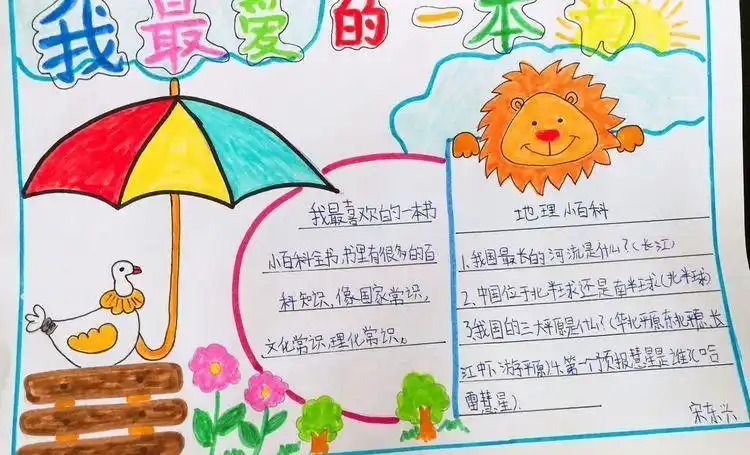 我最爱的一本书
我最喜欢的一本书
小百科全书,书里有很多的百
科知识,像国家常识,
文化常识,理化常识。
地理小百科
1.我国最长的河流是什么?(长江)
2.中国位于北半球还是南半球(北半球)
3.我国的三大平原是什么?(华北平原东北平原,长
江中下游平原)4.第一个预报慧星是谁?(哈
雷慧星).
宋东兴